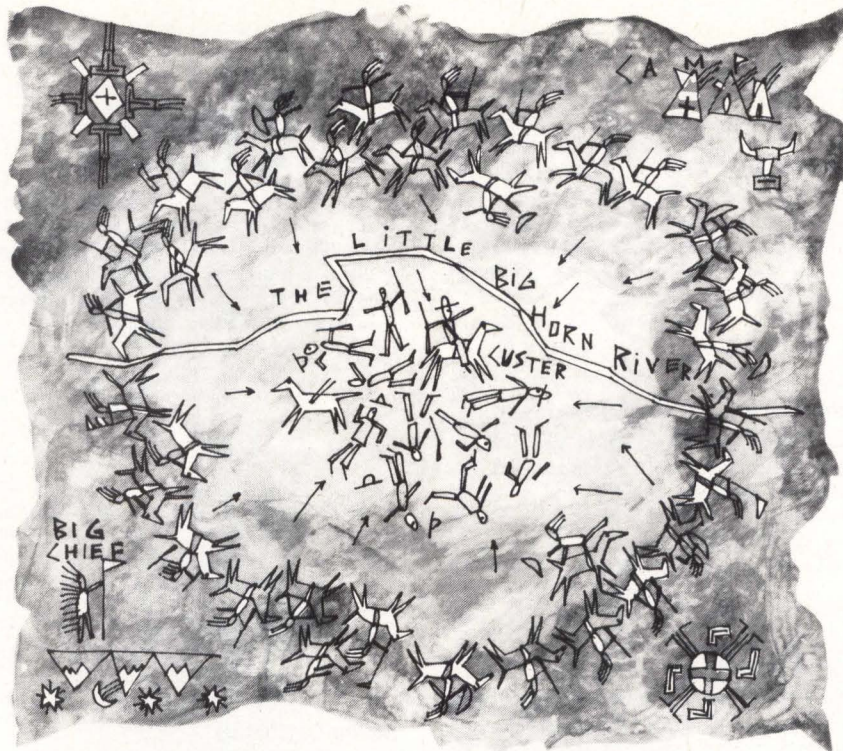 CAMP
THE LITTLE BIG HORN RIVER
CUSTER
BIG
CHIEF